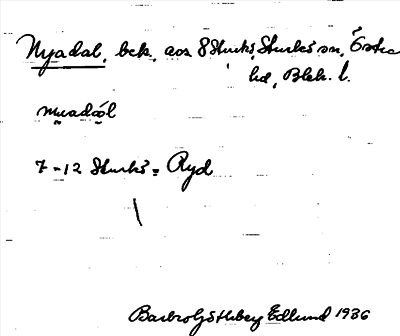 Nyadal, bck. aoa 8 Sturkö, Sturkö sn, Östra
hd, Blek. l.
nyadál
7-12 Sturkö = Ryd
Barbro Göthberg Edlund 1936